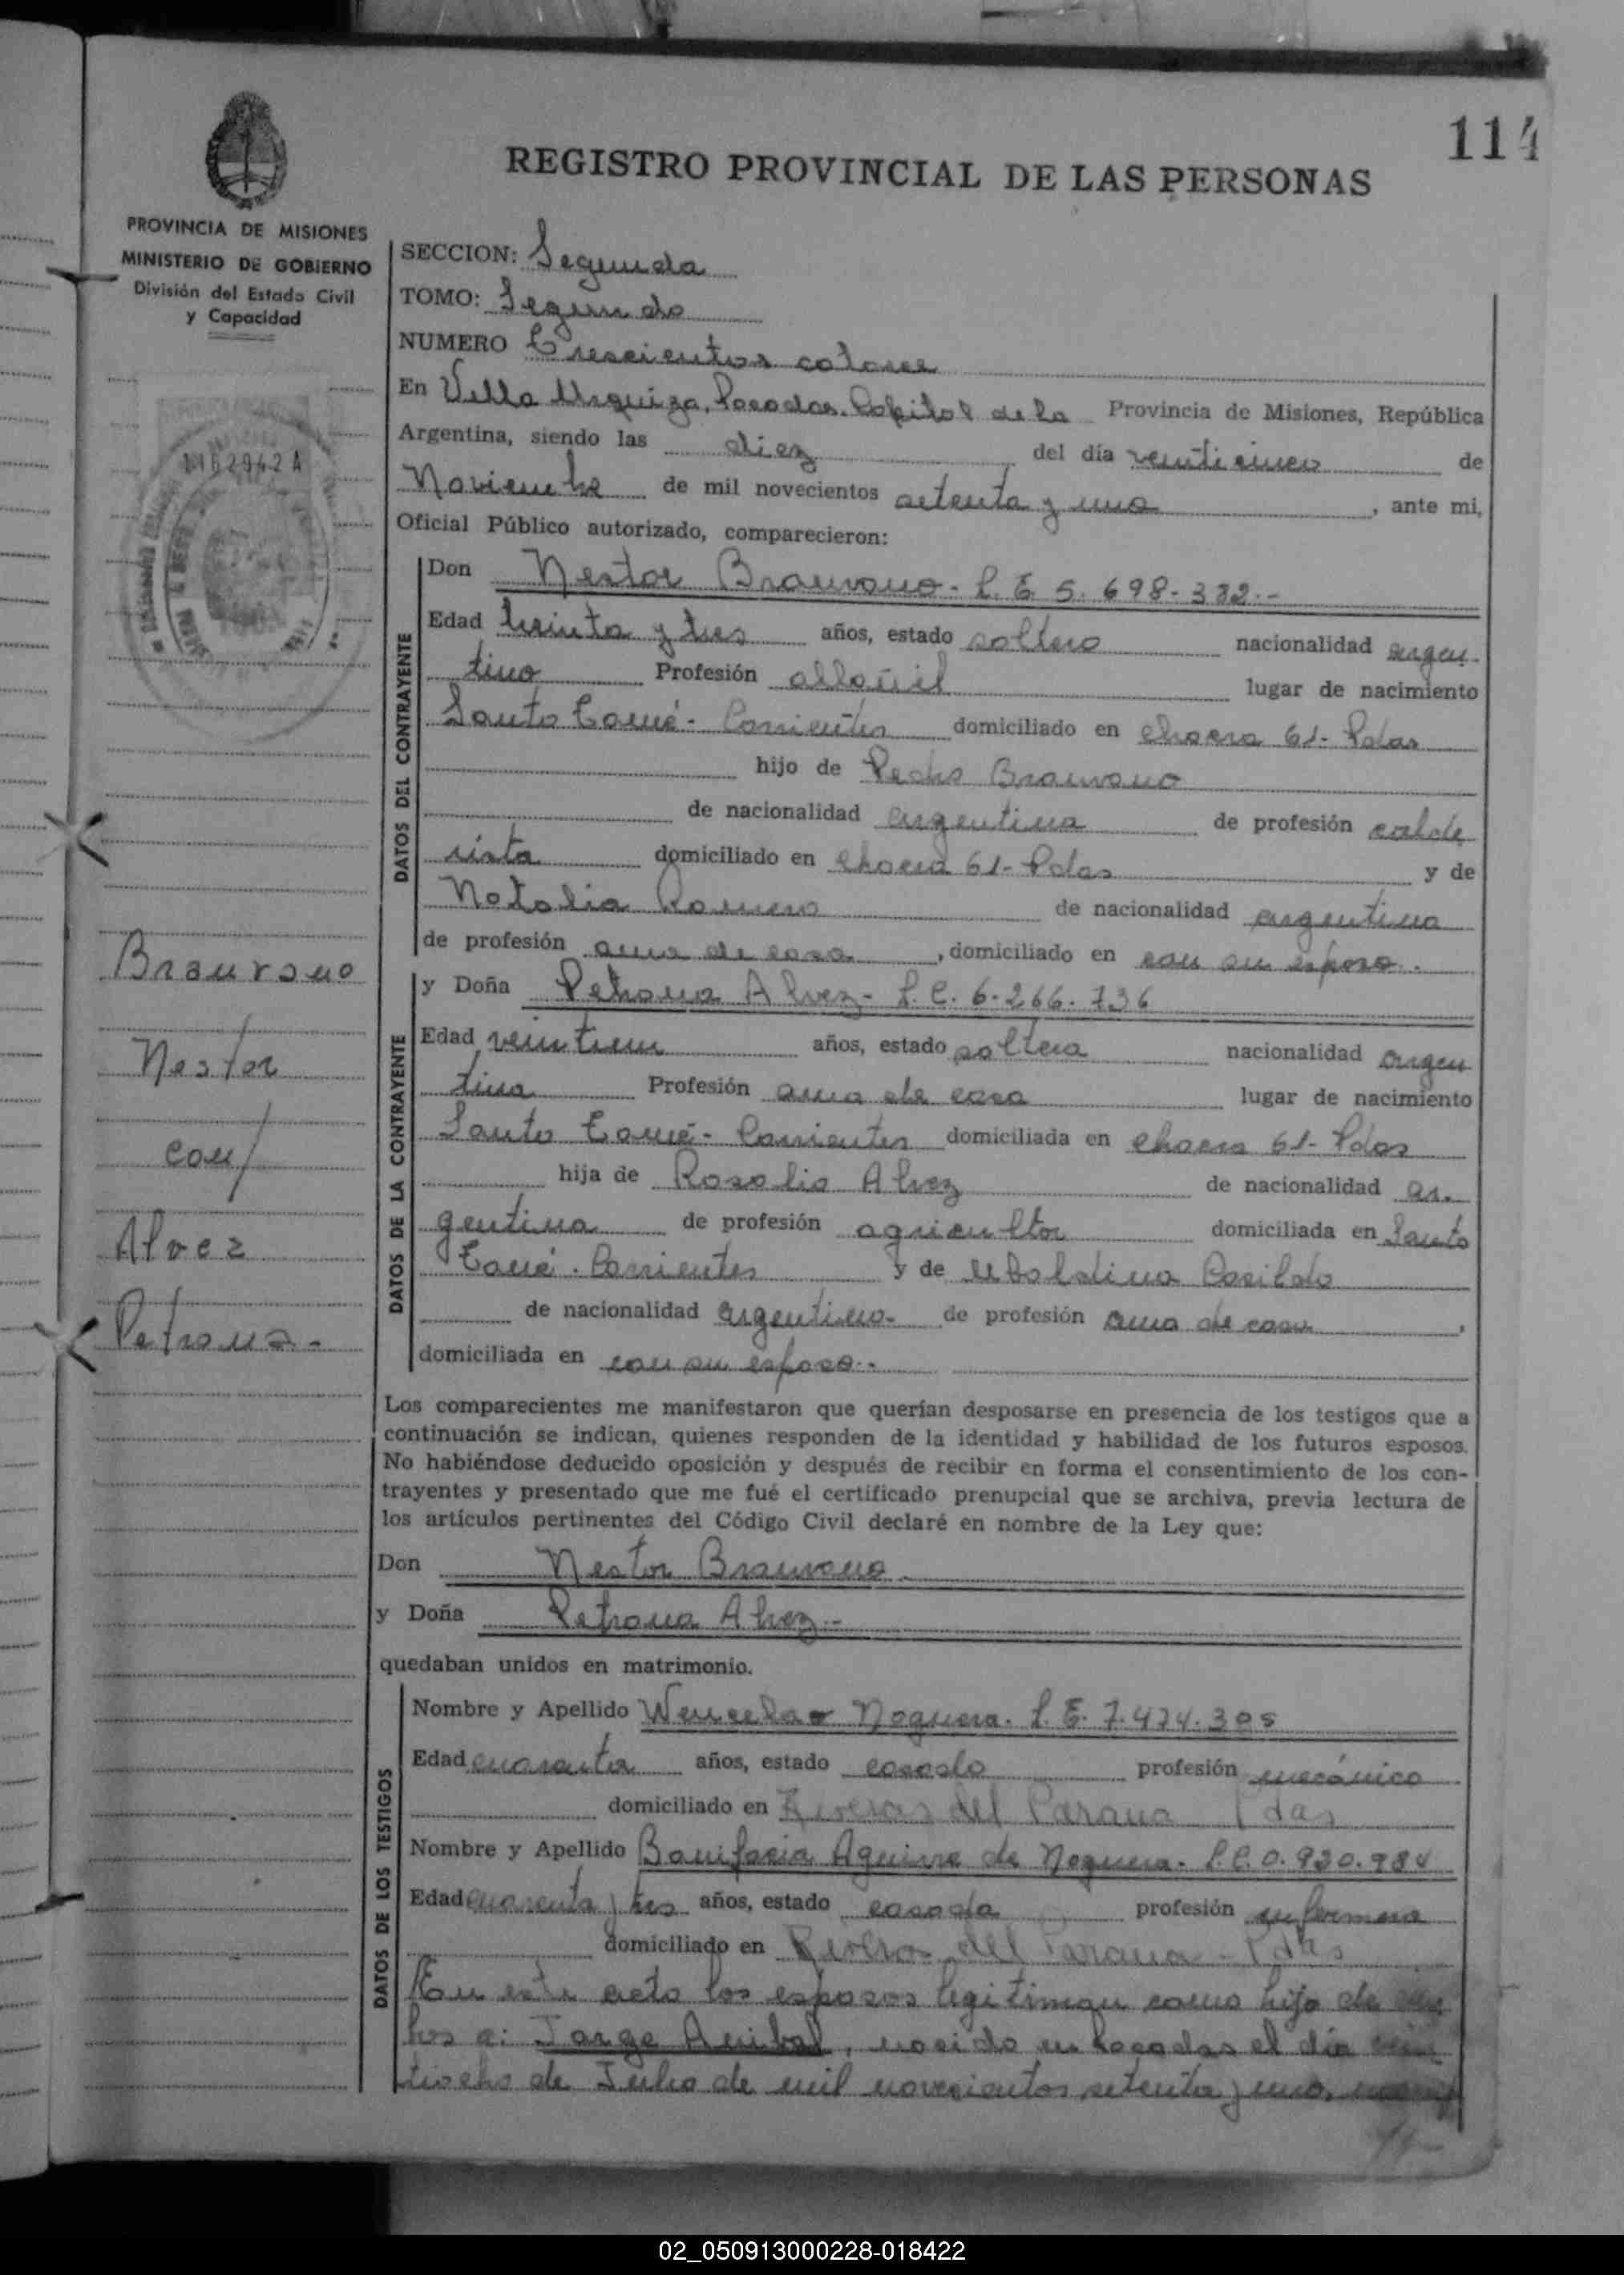 114
REGISTRO PROVINCIAL DE LAS PERSONAS
PROVINCIA DE MISIONES
MINISTERIO DE GOBIERNO
División del Estado Civil
y Capacidad
SECCION: Segunda
TOMO: Segundo
NUMERO Trescientos catorce
En Villa Urquiza, Posadas. Capital de la Provincia de Misiones, República
Argentina, siendo las diez del día veinticinco de
Noviembre de mil novecientos setenta y uno, ante mi,
Oficial Público autorizado, comparecieron:
DATOS DEL CONTRAYENTE
Don Nestor Braurono - L.E. 5.698-382.-
Edad treinta y tres años, estado soltero nacionalidad argen-
tino Profesión albañil lugar de nacimiento
Santo Tomé - Corrientes domiciliado en chacra 61 - Pdas
hijo de Pedro Braurono
de nacionalidad argentina de profesión calde
rista domiciliado en chacra 61 - Pdas y de
Natalia Romero de nacionalidad argentina
de profesión ama de casa, domiciliado en con su esposo.
DATOS DE LA CONTRAYENTE
y Doña Petrona Alvez - L.C. 6.266.736
Edad veintiun años, estado soltera nacionalidad argen
tina Profesión ama de casa lugar de nacimiento
Santo Tomé - Corrientes domiciliada en chacra 61 - Pdas
hija de Rosalio Alvez de nacionalidad ar.
gentina de profesión agricultor domiciliada en Santo
Tomé. Corrientes y de Ubaldina
de nacionalidad argentina de profesión ama de casa,
domiciliada en con su esposo.-
Braurono
Nestor
con/
Alvez
Petrona.-
Los comparecientes me manifestaron que querían desposarse en presencia de los testigos que a
continuación se indican, quienes responden de la identidad y habilidad de los futuros esposos.
No habiéndose deducido oposición y después de recibir en forma el consentimiento de los con-
trayentes y presentado que me fué el certificado prenupcial que se archiva, previa lectura de
los artículos pertinentes del Código Civil declaré en nombre de la Ley que:
Don Nestor Braurono
y Doña Petrona Alvez.-
quedaban unidos en matrimonio.
DATOS DE LOS TESTIGOS
Nombre y Apellido Wenceslao Noguera. L.E. 7.474.305
Edad cuarenta años, estado casado profesión mecánico
domiciliado en Riveras del Parana Pdas
Nombre y Apellido Bonifacia Aguirre de Noguera. L.C. 0.920.984
Edad cuarenta y tres años, estado casada profesión enfermera
domiciliado en Riveras del Parana - Pdas
En este acto los esposos legitiman como hijo de
bos a: Jorge Anibal, nacido en Posadas el día
tiocho de Julio de mil novecientos setenta y uno,
02_050913000228-018422